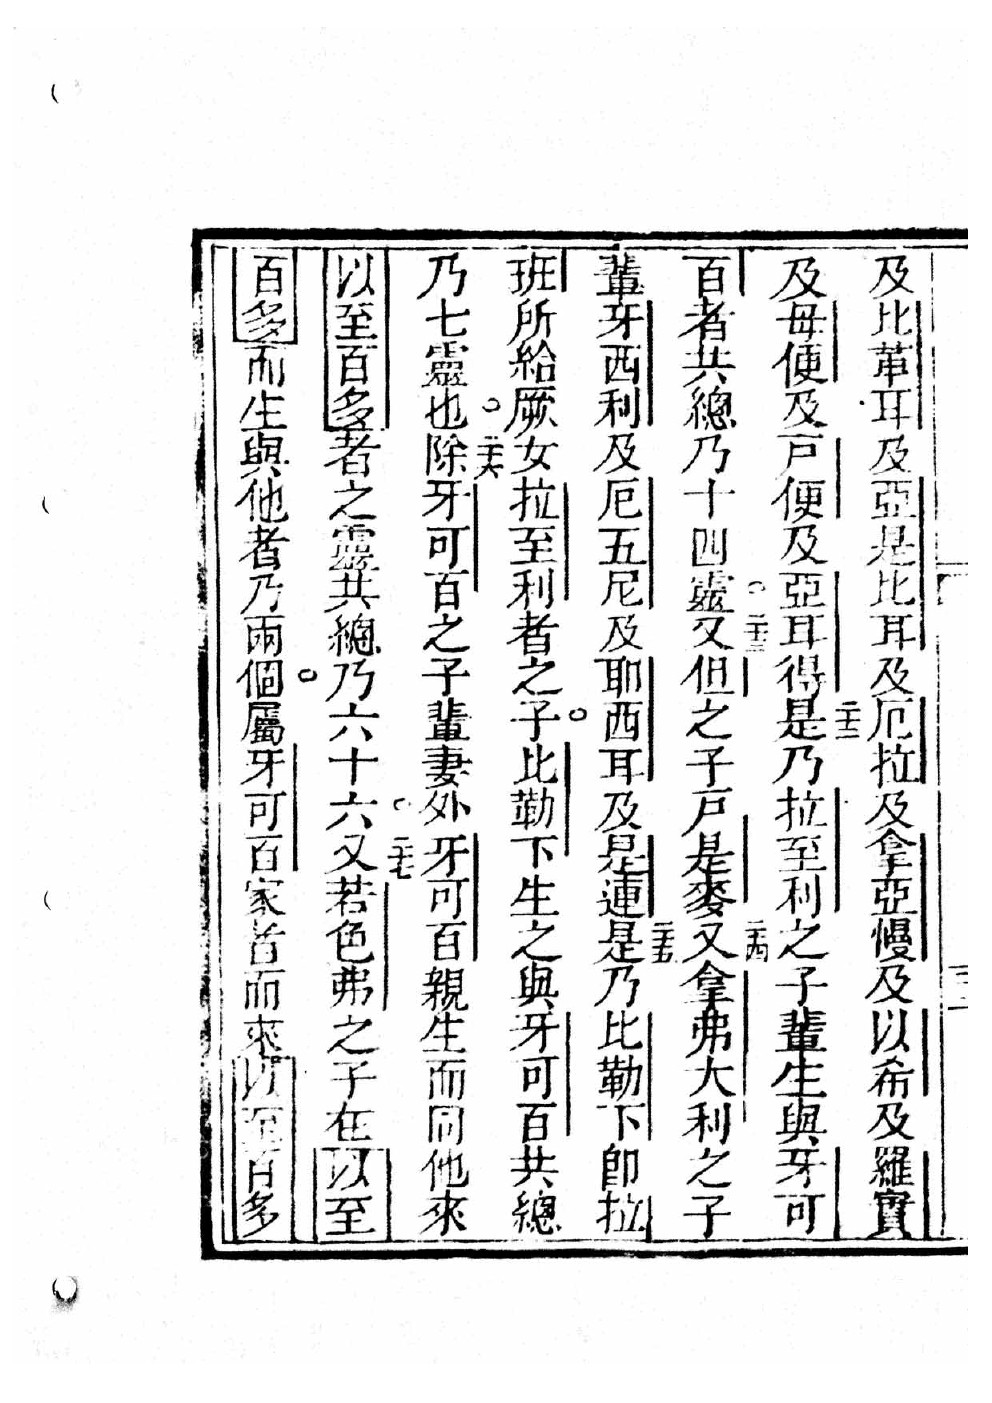 及比革耳及亞是比耳及厄拉及拿亞慢及以希及羅實
及毋便及戸便及亞耳得二十二是乃拉至利之子輩生與牙可
百者共總乃十四靈○二十三又但之子戸是麥二十四又拿弗大利之子
輩牙西利及厄五尼及耶西耳及是連二十五是乃比勒下卽拉
班所給厥女拉至利者之子○比勒下生之與牙可百共總
乃七靈也○二十六除牙可百之子輩妻外牙可百親生而同他來
以至百多者之靈共總乃六十六○二十七又若色弗之子在以至
百多而生與他者乃兩個○屬牙可百家者而來以至百多